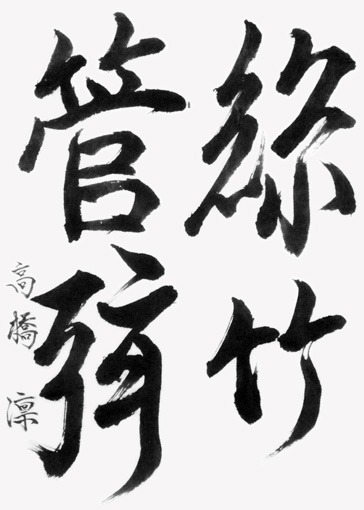 絲竹
管弦
高橋凛